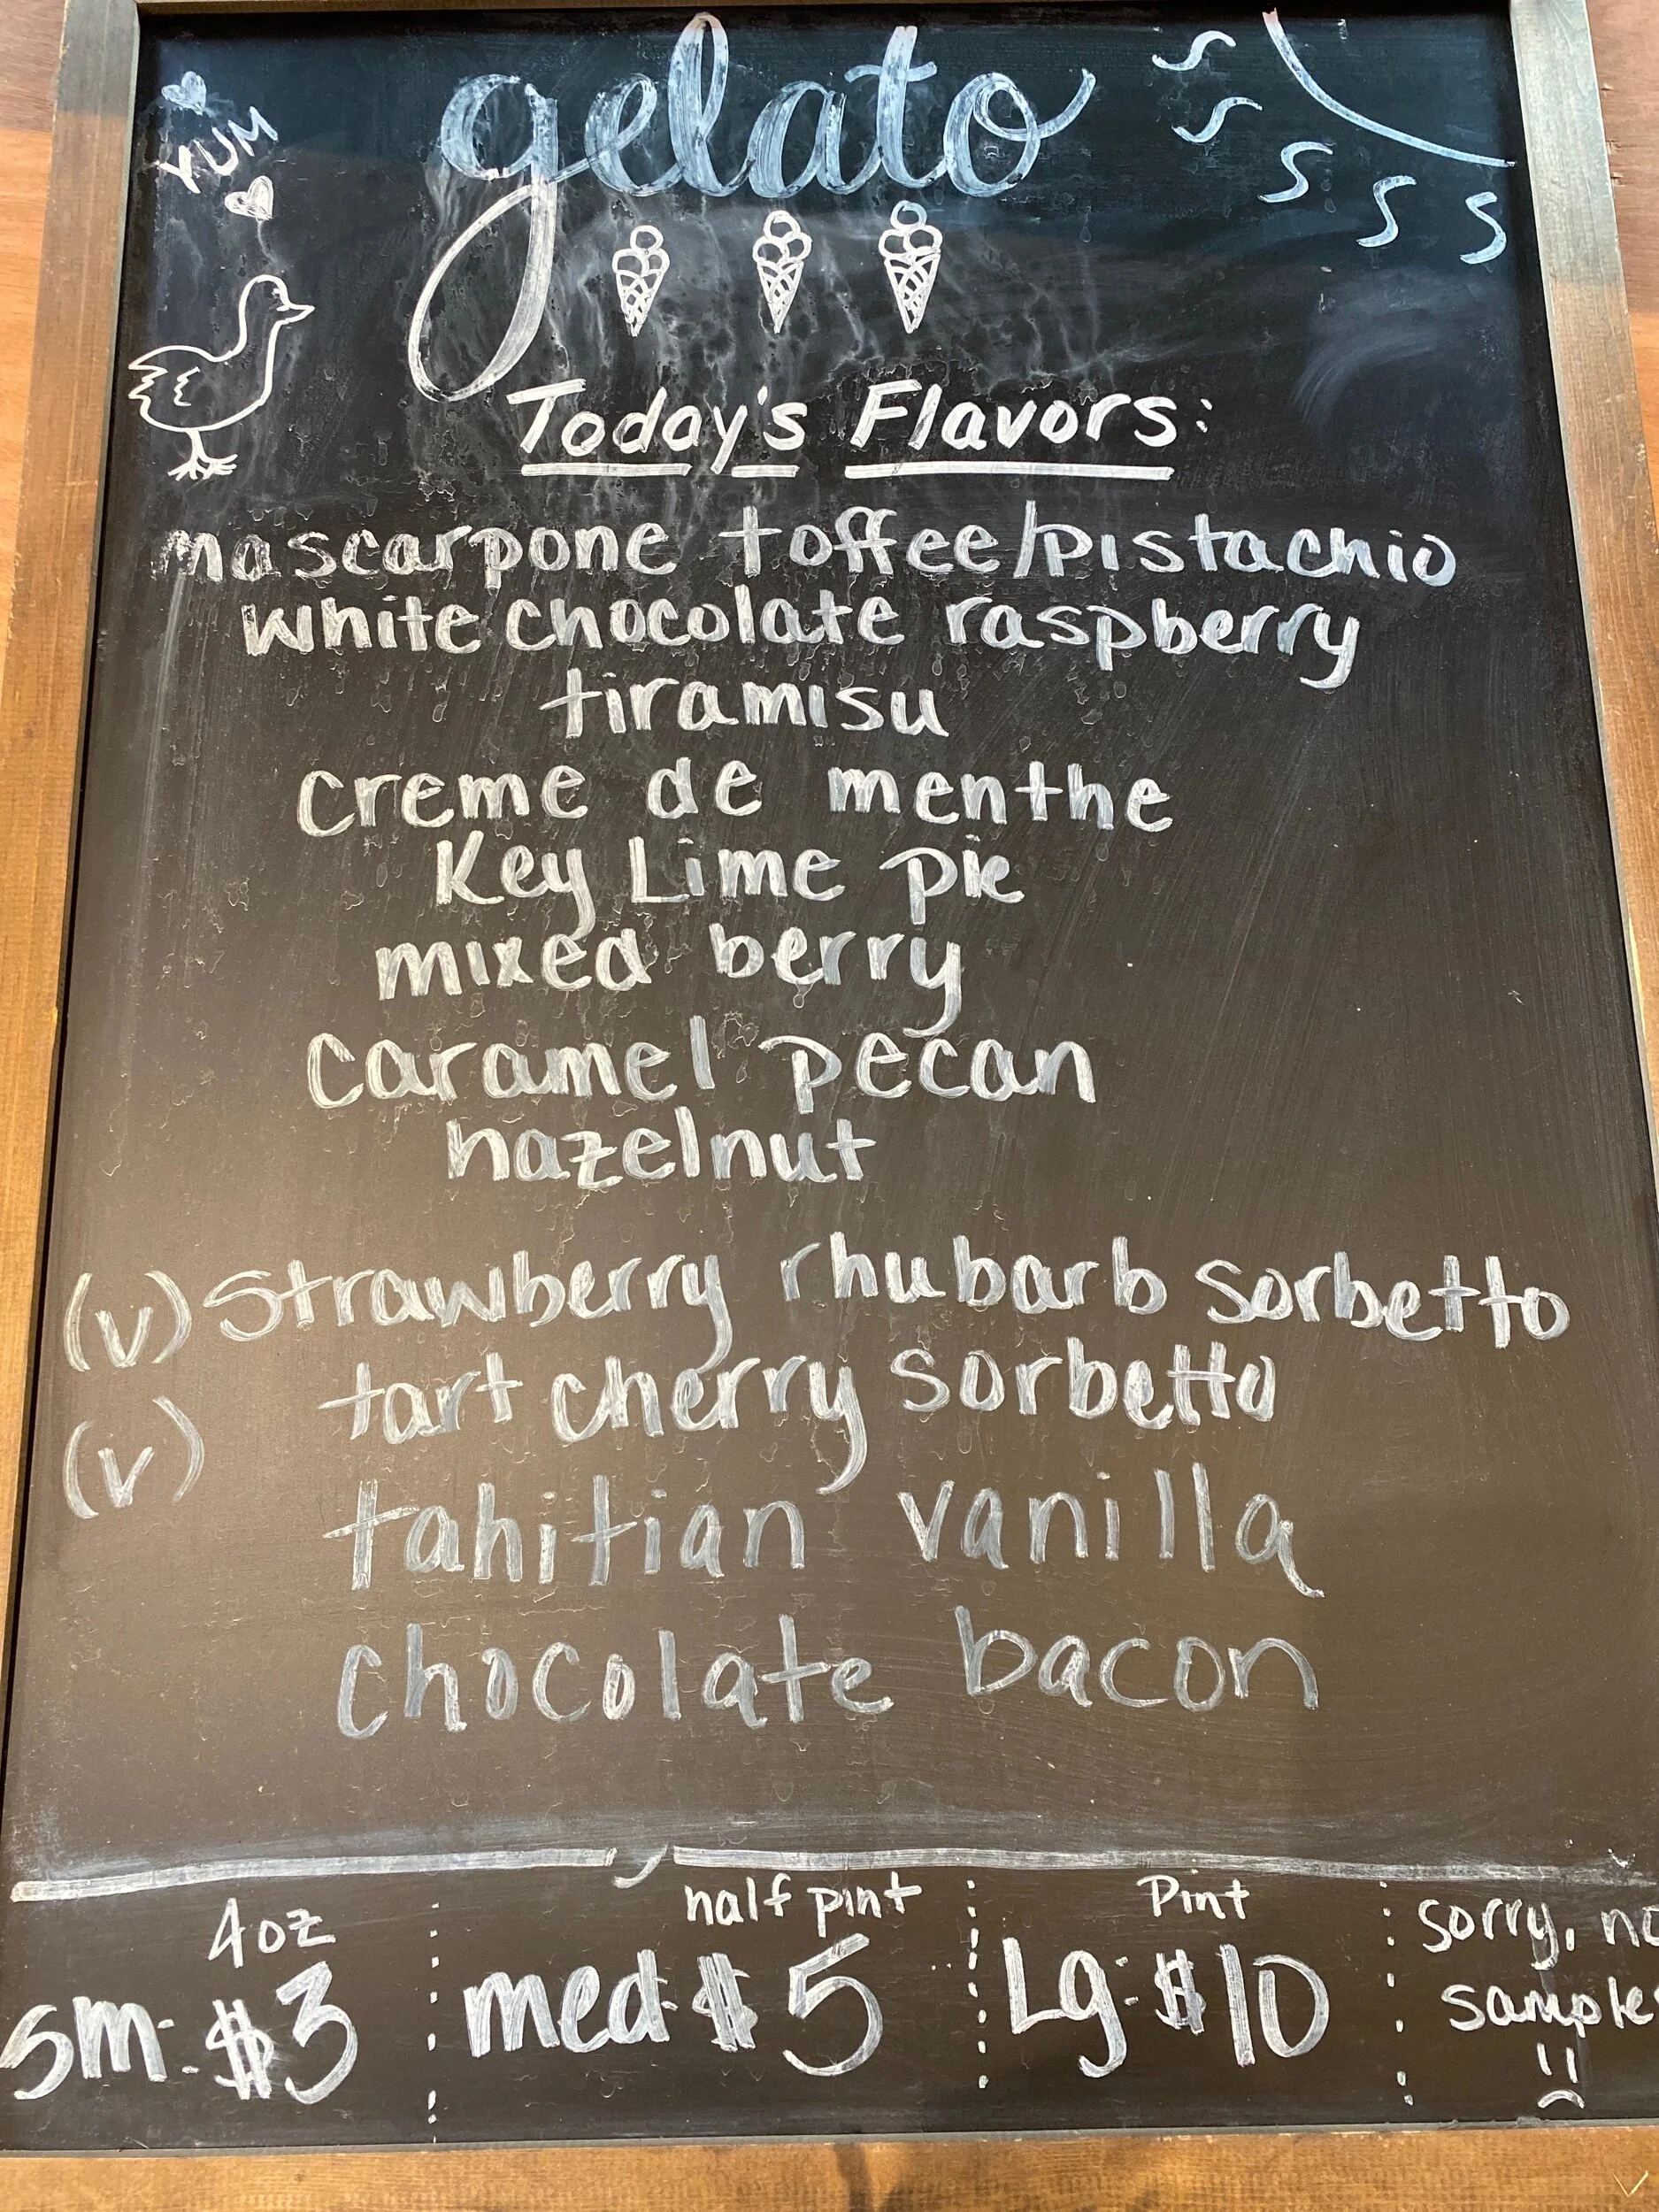 gelato
YUM
Today's Flavors:
mascarpone toffee/pistachio
white chocolate raspberry
tiramisu
creme de menthe
Key Lime pie
mixed berry
caramel pecan
hazelnut
(v) Strawberry rhubarb sorbetto
(v) tart cherry sorbetto
tahitian vanilla
chocolate bacon
4oz
sm: $3
half pint
med: $5
Pint
Lg: $10
sorry, no
sample